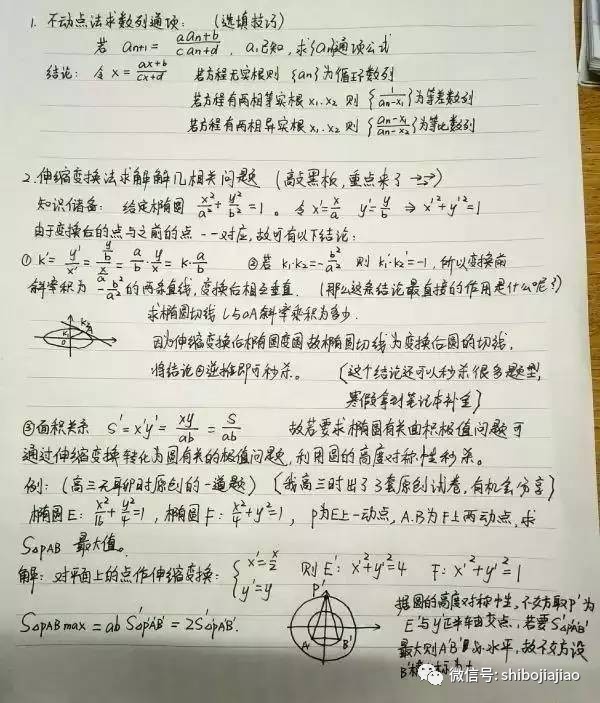 1. 不动点法求数列通项: (选填技巧)
若 aₙ₊₁ = (aaₙ+b)/(caₙ+d), a₁已知, 求{aₙ}通项公式
结论: 令 x = (ax+b)/(cx+d) 若方程无实根则{aₙ}为循环数列
若方程有两相等实根 x₁. x₂ 则 {1/(aₙ-x₁)}为等差数列
若方程有两相异实根 x₁. x₂ 则 {(aₙ-x₁)/(aₙ-x₂)}为等比数列
2. 伸缩变换法求解解几相关问题 (敲黑板, 重点来了 →→)
知识储备: 给定椭圆 x²/a² + y²/b² = 1。令 x'=x/a y'=y/b ⇒ x'²+y'²=1
由于变换后的点与之前的点一一对应, 故可有以下结论:
① k' = y'/x' = (y/b)/(x/a) = a/b · y/x = k·a/b ②若 k₁·k₂=-b²/a² 则 k₁'·k₂'=-1, 所以变换前
斜率积为 -b²/a² 的两条直线, 变换后相互垂直. (那么这条结论最直接的作用是什么呢?)
求椭圆切线 l 与 OA 斜率乘积为多少.
因为伸缩变换后椭圆变圆故椭圆切线为变换后圆的切线,
将结论②逆推即可秒杀。 [这个结论还可以秒杀很多题型,
寒假拿到笔记本补全]
③面积关系 S'=x'y' = xy/ab = S/ab 故若要求椭圆有关面积极值问题可
通过伸缩变换转化为圆有关的极值问题, 利用圆的高度对称性秒杀。
例: (高三元 时原创的一道题) [我高三时出了3套原创试卷, 有机会分享]
椭圆E: x²/16 + y²/4 = 1, 椭圆F: x²/4 + y² = 1, P为E上一动点, A.B为F上两动点, 求
S△PAB 最大值。
解: 对平面上的点作伸缩变换: { x'=x/2 y'=y 则 E': x'²+y'²=4 F: x'²+y'²=1
S△PAB max = ab S'△P'A'B' = 2S'△P'A'B'.
P'
A' B'
据圆的高度对称性, 不妨取P'为
E'与y正半轴交点, 若要S'△P'A'B'
最大则A'B' 水平, 故不妨设
B'横坐标为
微信号: shibojiajiao